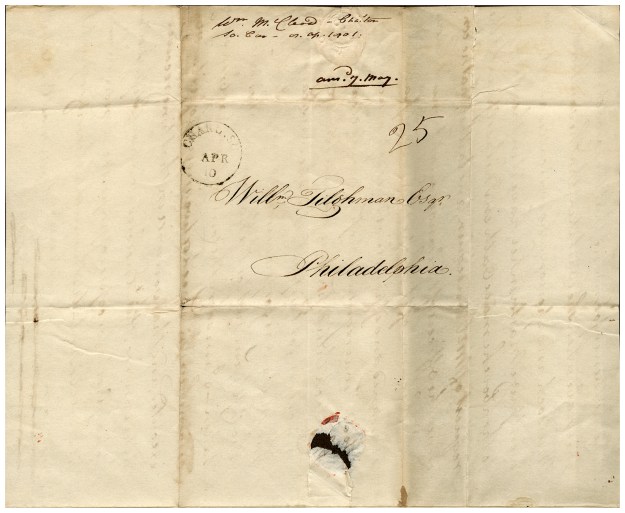 Wm. McCleod - Chalton
So. Car - 9. Ap. 1801.
ansd. 7. May.
25
CHARO. SC
APR
10
Willm. Tilghman Esqr.
Philadelphia.